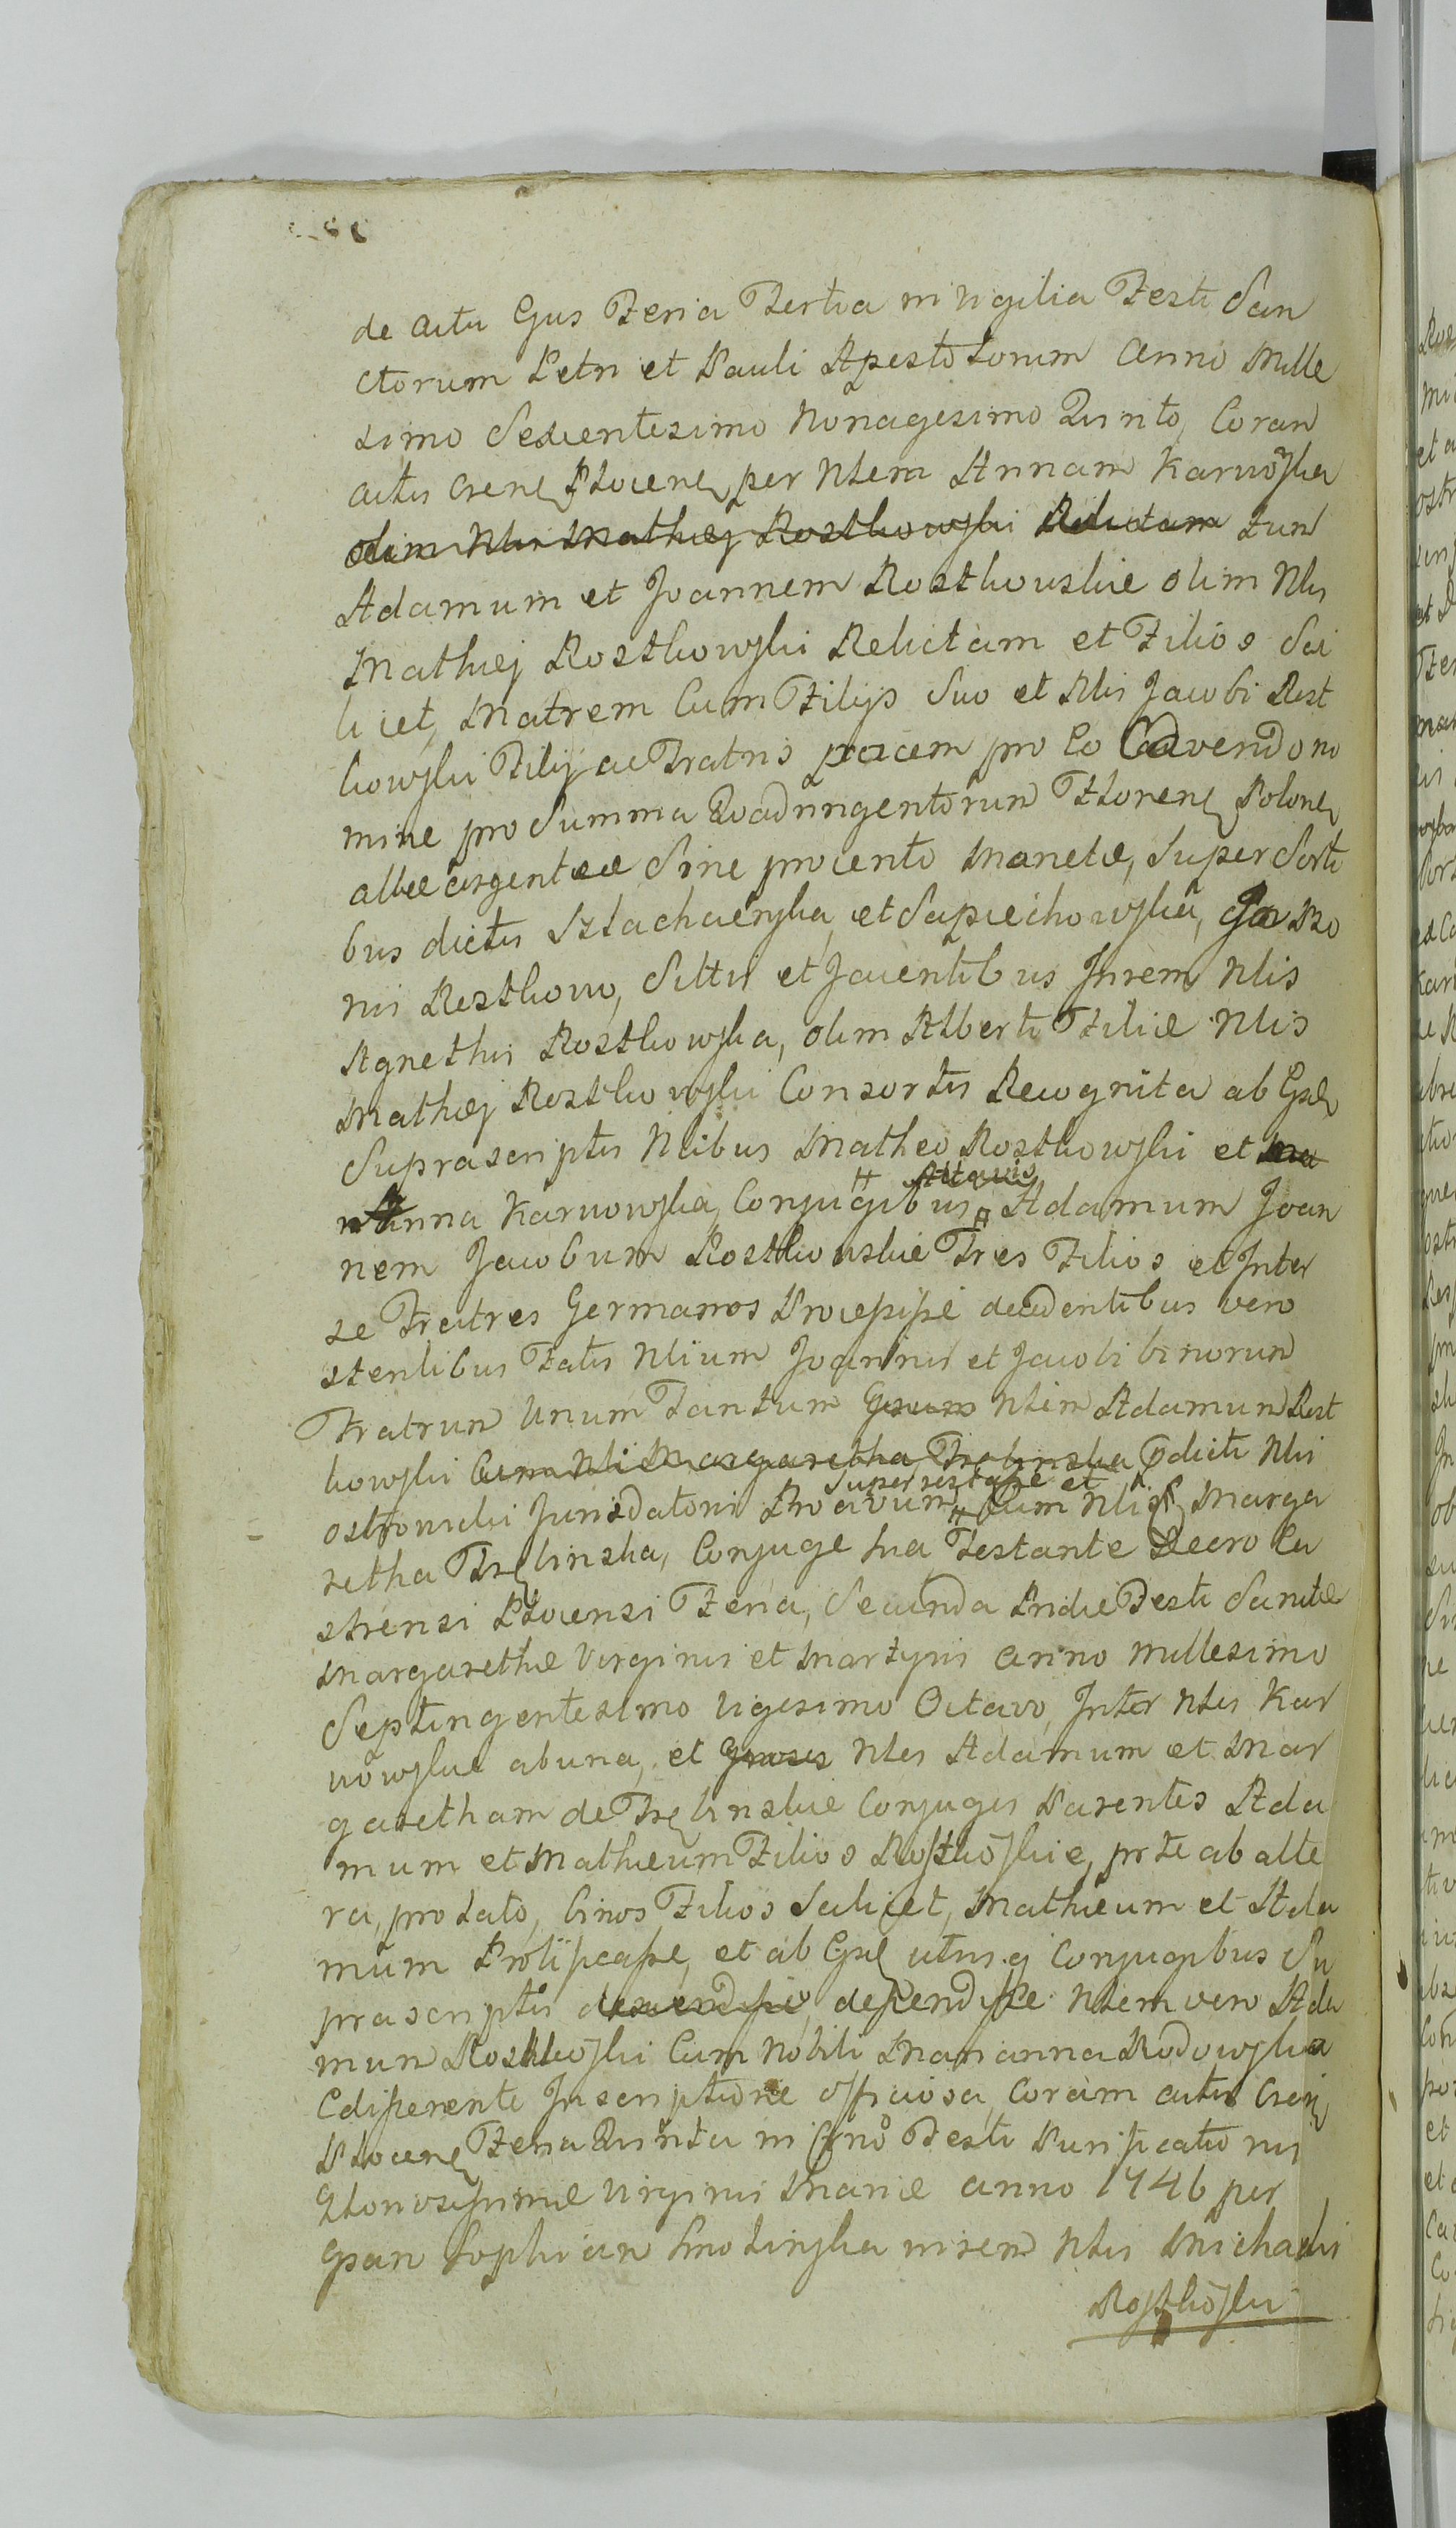 de actu Ejus Feria Tertia in vigilia Festi San
ctorum Petri et Pauli Apostolorum Anno Mille
simo Sexcentesimo Nonagesimo Quinto, Coram
actis Cren Plocen per Nlem Annam Karwoska
olim Nlis Mathiej Rostkowski Relictam tum
Adamum et Joannem Rostkowskie olim Nlis
Mathiej Rostkowski Relictam et Filios Sci
licet, Matrem Cum Filijs Suo et Nlis Jacobi Rost
kowski Filij ac Fratris pacem pro Eo Cavendo no
mine pro Summa Quadringentorum Floren Polon
albae argenteae Sine procento Monetae, Super Sorti
bus dictis Szlachaeryska et Sapiechowska, in Bo
nis Rostkowo, Sittis et Jacentibus Inrem Nlis
Agnethis Rostkowska, olim Alberti Filiae Nlis
Mathiej Rostkowski Consortis Recognita ab Gsd
Suprascriptis Nlibus Matheo Rostkowski et Ma
Anna Karwowska, Conjugibus Attavis Adamum Joan
nem Jacobum Rostkowskie Tres Filios et Inter
se Fratres Germanos Procepisse decedentibus vero
sterilibus Fatis Nlium Joannis et Jacobi binorum
Fratrum Unum Tantum Gnum Nlem Adamum Rost
kowski Cum Nli Margaretha Trębinska pdicti Nlis
Ostrowski Jurisdatoris Proavum superrestasse et Cum Nli Marga
retha Trębinska, Conjuge sua Testante Decro Ca
strensi Plocensi Feria, Secunda Pridie Festi Sanctae
Margarethae Virginis et Martyris Anno Millesimo
Septingentesimo Vigesimo Octavo, Inter Nles Kar
wowskie abuna, et Gnosos Nles Adamum et Mar
garetham de Trębinskie Conjuges Parentes Ada
mum et Mathaeum Filios Rostkoskie, prte ab alte
ra, prolato, binos Filios Scilicet, Mathaeum et Ada
mum Prolificasse, et ab Gsd utrisq Conjugibus Su
prascriptis descendisse, descendisse Nlem vero Ada
mum Rostkoski Cum Nobili Marianna Rudowska
Edisserente Inscriptione officiosa, Coram actis Cren
Plocen Feria Quinta in Crno Festi Purificationis
Gloriosissimae Virginis Mariae Anno 1746 per
Gsam Sophiam Smolinska inrem Nlis Michaelis
Rostkoski